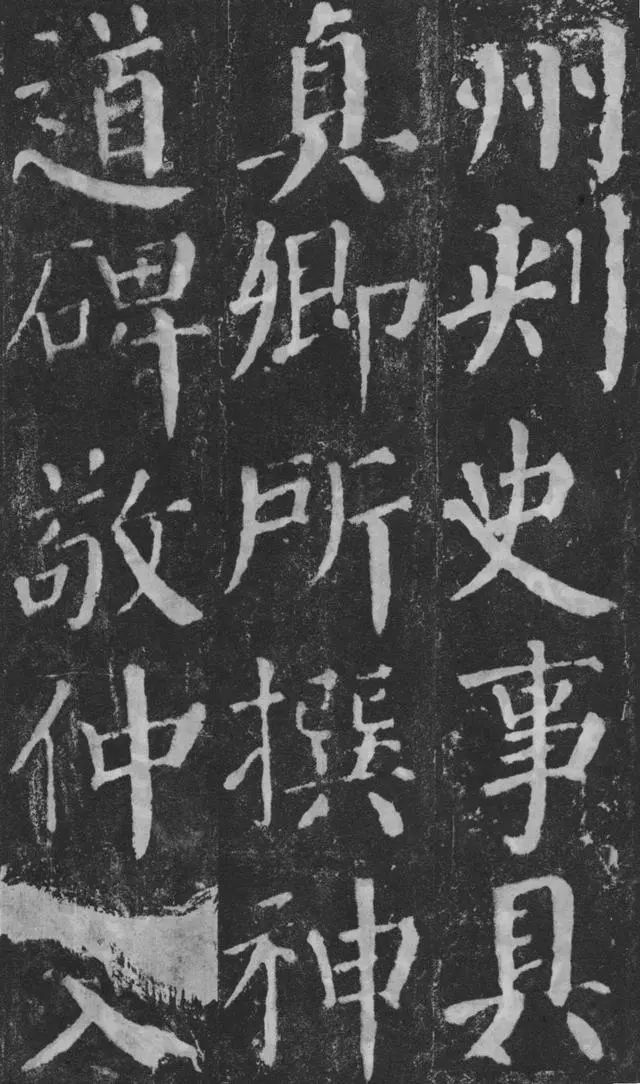 州刺史事具
真卿所撰神
道碑敬仲入